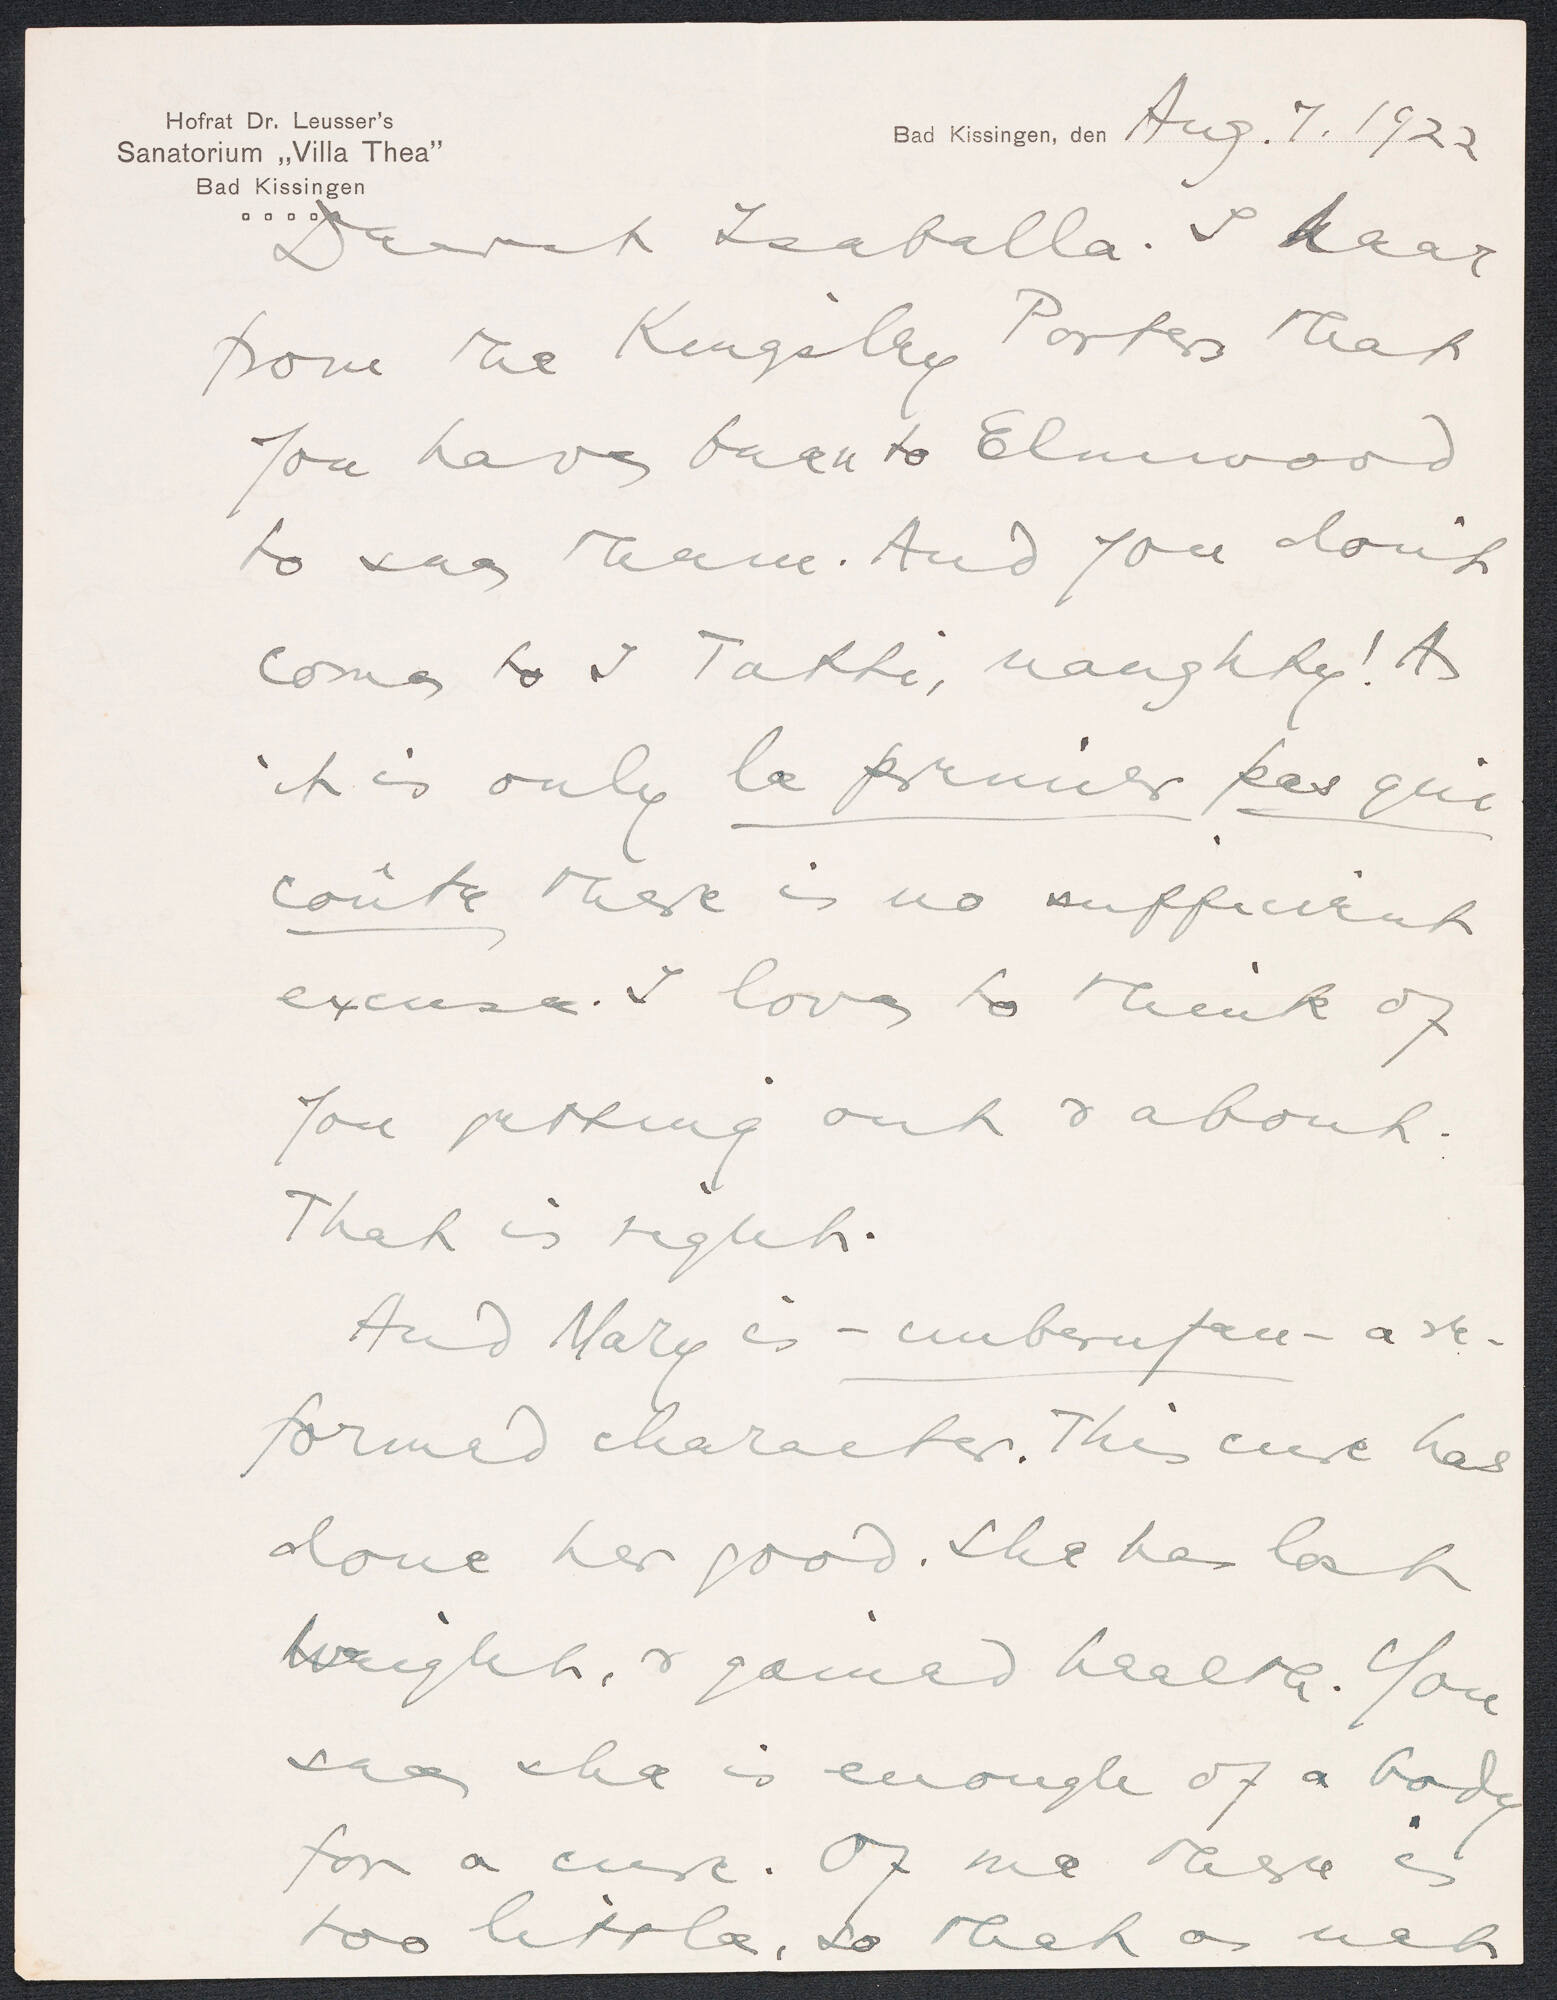 Hofrat Dr. Leusser's
Sanatorium „Villa Thea"
Bad Kissingen
Bad Kissingen, den Aug. 7. 1922
Dearest Isabella. I hear
from the Kingsley Porters that
you have been to Elmwood
to see them. And you don't
come to I Tatti, naughty! As
it is only le premier pas qui
coûte there is no sufficient
excuse. I love to think of
you getting out & about.
That is right.
And Mary is - unberufen - a re-
formed character. This cure has
done her good. She has lost
weight, & gained health. You
see she is enough of a body
for a cure. Of me there is
too little, so that as net